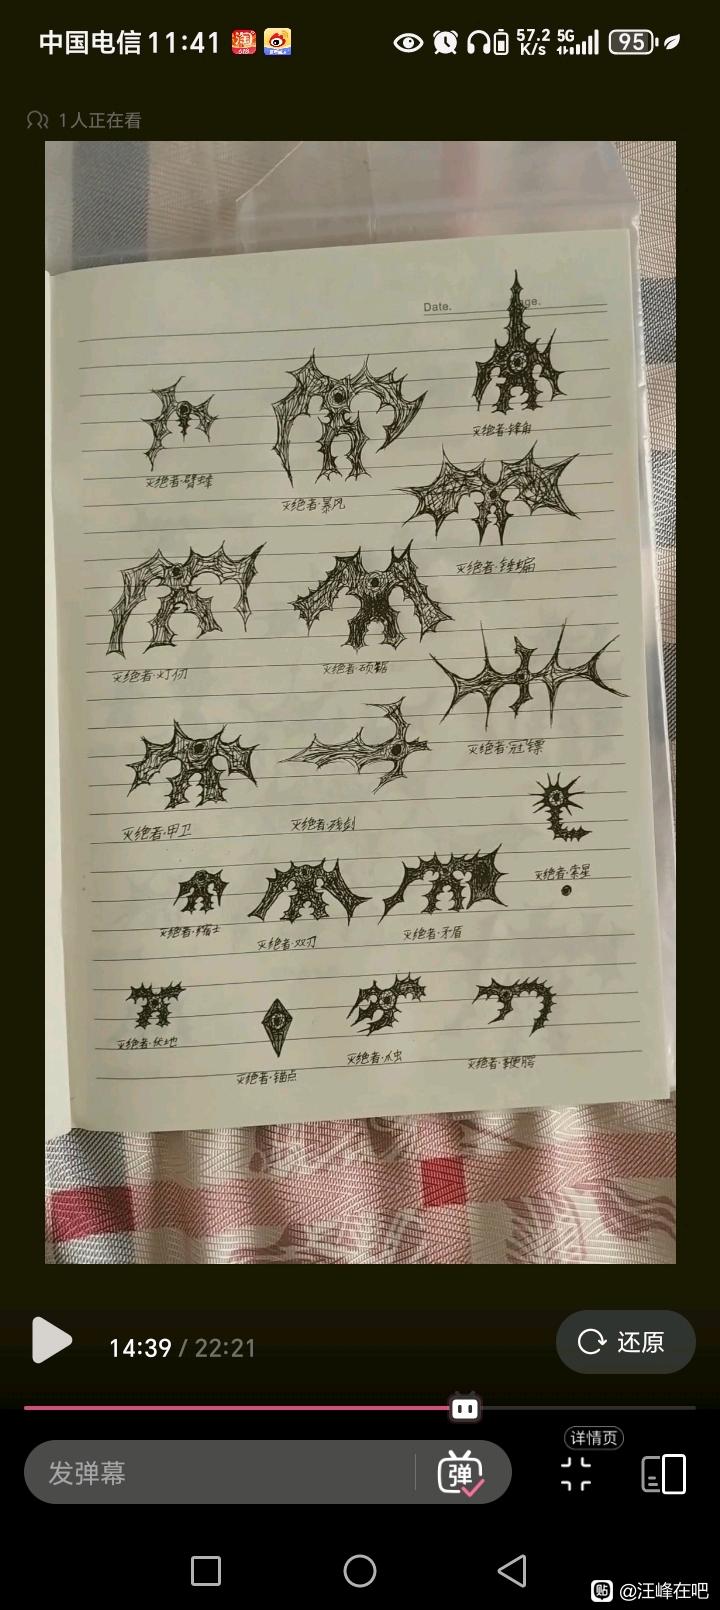 中国电信 11:41
57.2 K/s
5G
95
1人正在看
Date.
灭绝者·锋角
灭绝者·臂蜂
灭绝者·暴风
灭绝者·锤蝙
灭绝者·灯仞
灭绝者·硕锯
灭绝者·冠镖
灭绝者·甲卫
灭绝者·残剑
灭绝者·索星
灭绝者·缩士
灭绝者·双刃
灭绝者·矛盾
灭绝者·伏地
灭绝者·锚点
灭绝者·爪虫
灭绝者·鞭腭
14:39 / 22:21
还原
详情页
发弹幕
弹
贴 @汪峰在吧